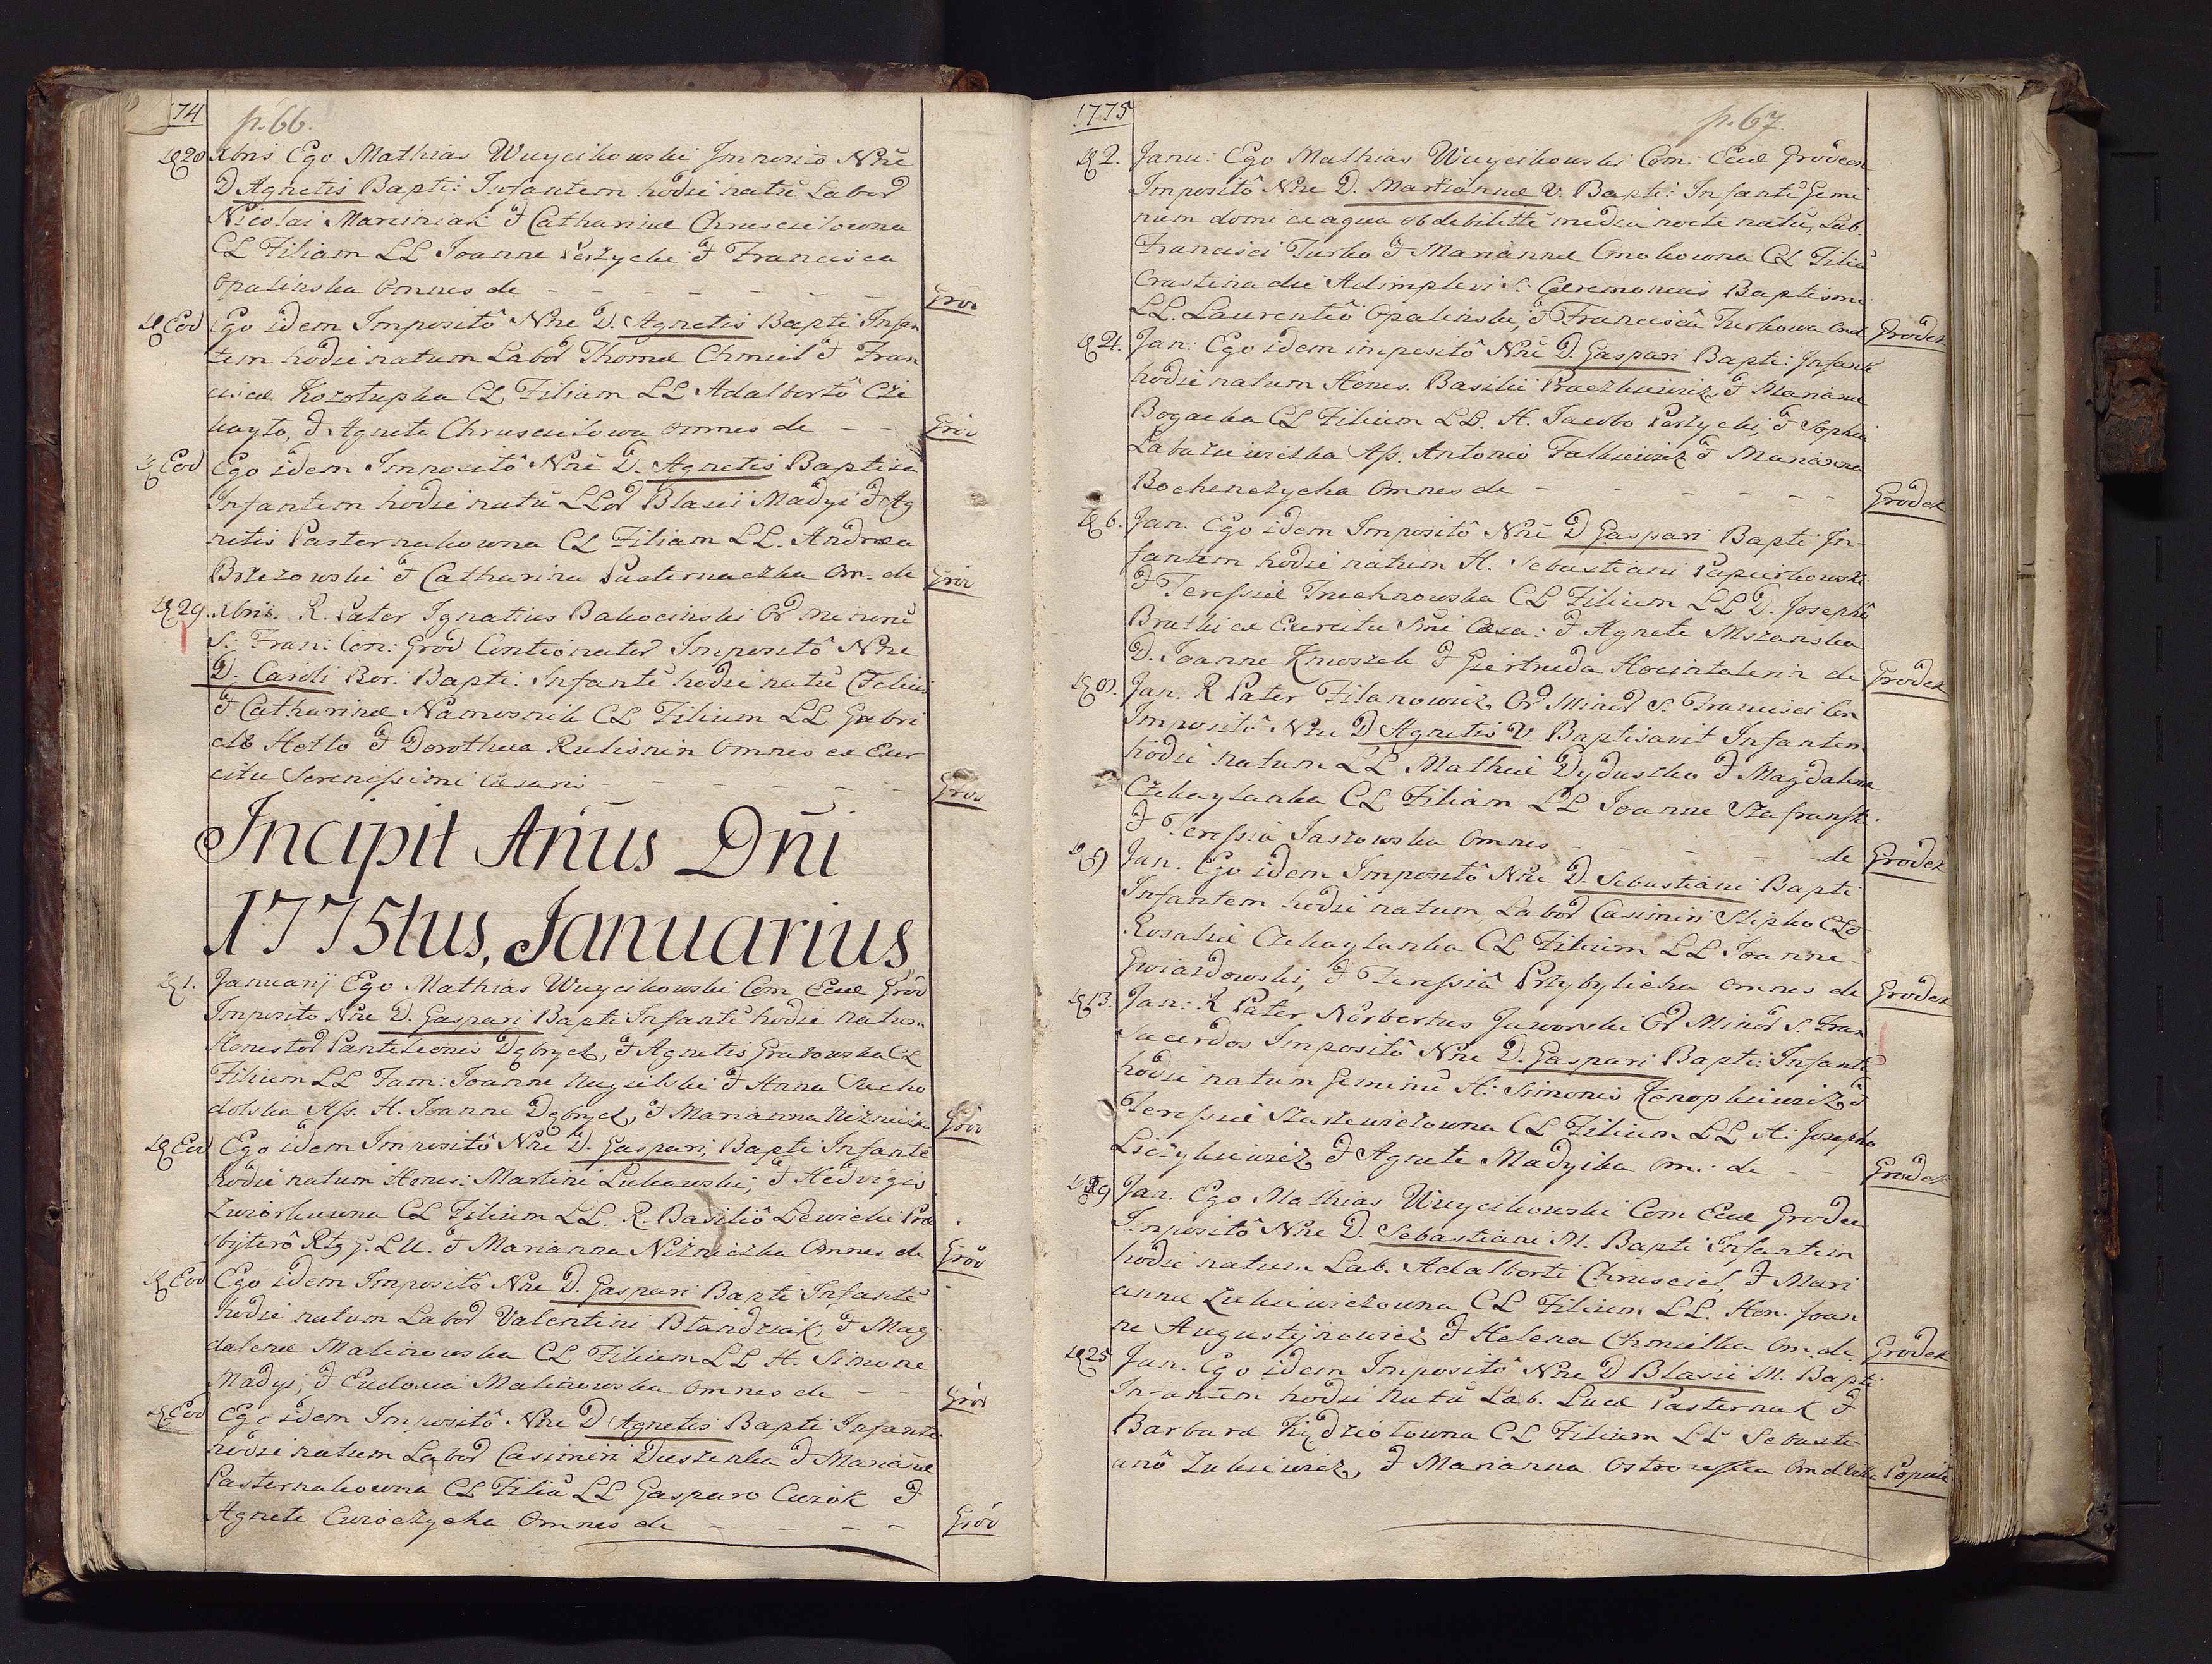 74
p. 66.
20 Xbris Ego Mathias Wuycikowski Imposito Nñe
D Agnetis Bapti: Infantem hodie natũ Labor
Nicolai Marciniak & Catharinæ Chruscielowna
CL Filiam LL Joanne & Francisca
Opalinska Omnes de - - - - Grod
Eod Ego idem Impositô Nñe D. Agnetis Bapti Infan
tem hodie natum Labor Thomæ Chmiel & Fran
ciscæ Kozotupka CL Filiam LL Adalbertô Cze
kayto, & Agnete Chruscielowa omnes de - - Grod
Eod Ego idem Impositô Nñe D. Agnetis Baptisa
Infantem hodie natũ Blasii Madyi & Ag
netis Pasternakowna CL Filiam LL. Andrea
Brzezowski & Catharina Pasternaczka Om. de Grod
29. Xbris. R. Pater Ignatius Bakocinski Or
S: Fran: Con: Grod Contionator Impositô Nñe
D. Caroli Bor. Bapti. Infantẽ hodie natũ
& Catharinæ Namesnik CL Filium LL Gabri
elô Hotlo & Dorothea Rulisnin Omnes ex Exer
citu Serenissimi Cæsaris - - - - Grod
Incipit Añus Dñi
1775tus, Januarius
1. Januarij Ego Mathias Wuycikowski Com Eccl Grod
Imposito Nñe D. Gaspari Bapti Infantẽ hodie natum
Honestor Panteleonis Dąbrych, & Agnetis Grabowska CL
Filium LL Fam: Joanne & Anna Sucho
dolska Ass. H. Joanne Dąbrych, & Marianna Grod
Eod Ego idem Impositô Nñe D. Gaspari, Bapti Infantẽ
hodie natum Hones: Martini Lukawski, & Hedvigis
CL Filium LL. R. Basiliô Lewicki Præ
sbyterô & Marianna Nizniczka Omnes de Grod
Eod Ego idem Impositô Nñe D. Gaspari Bapti Infantẽ
hodie natum Labor Valentini & Mag
dalenæ Malinowska CL Filium LL H. Simone
Madyi, & Eudoxia Malinowska omnes de - - Grod
Eod Ego idem Impositô Nñe D Agnetis Bapti Infantẽ
hodie natum Labor Casimiri Duszenka & Mariañæ
Pasternakowna CL Filiã LL Gasparo Cwiok &
Agnete Cwioczycha Omnes de - - - - Grod
1775
p. 67.
2. Janu: Ego Mathias Wuycikowski Com: Eccl Grodecen
Impositô Nñe D. Mariannæ V. Bapti: Infantẽ Gemi
num domi ex aqua ob debilittẽ media nocte natũ, Lab.
Francisci Turko & Mariannæ Cmokowna CL Filiã
Crastina die Adimplevi S: Cæremoniis Baptismi
LL. Laurentiô Opalinski, & Franciscâ Turkowa Grodek
4. Jan: Ego idem impositô Nñe D. Gaspari Bapti: Infantẽ
hodie natum Hones. Basilii & Mariannæ
Bogacka CL Filium LL. H. Jacobo & Sophia
Labaziewiczka Ass. Antonio Falkiewicz & Marianna
Bochenczycha Omnes de - - - - Grodek
6. Jan. Ego idem Impositô Nñe D Gaspari Bapti In-
fantem hodie natum H. Sebastiani Papierkowski
& Teressiæ Truchnowska CL Filium LL D. Josephô
Bratki ex Exercitu Smi Cæsa: & Agnete Mszanska
D. Joanne Kmoszek & Giertruda de Grodek
Jan. R Pater Filanowicz Or Minor S. Francisci Con
Impositô Nñe D Agnetis V. Baptisavit Infantem
hodie natum LL Mathiæ Dyduszko & Magdalenæ
Czekaylanka CL Filiam LL Joanne Szafranski
& Teressia Jaszowska Omnes - - - - de Grodek
9 Jan. Ego idem Impositô Nñe D. Sebastiani Bapti
Infantem hodie natum Labor Casimiri Slipko CL &
Rosaliæ Czekaylanka CL Filium LL Joanne
Gwiazdowski, & Teressiâ Przybylicha omnes de Grodek
13. Jan: R Pater Norbertus Jaworski Or Minor S. Fran
Sacerdos Impositô Nñe D. Gaspari Bapti: Infantẽ
hodie natum Geminũ H: Simonis Konopkiewicz &
Teressiæ CL Filium LL H: Josepho
& Agnete Madyika Om: de - - Grodek
19 Jan. Ego Mathias Wuycikowski Com Eccl Grodec
Impositô Nñe D. Sebastiani M. Bapti Infantem
hodie natum Lab. Adalberti Chrusciel, & Mari
annæ Zukiewiczowna CL Filium LL. Hon. Joan
ne Augustynowicz & Helena Chmielka Om. de. Grodek
25 Jan. Ego idem Impositô Nñe D Blasii M. Bapti
Infantem hodie natũ Lab. Lucæ Pasternak &
Barbaræ Kędziołowna CL Filium LL Sebasti
anô Zukiewicz, & Marianna Ostrowska